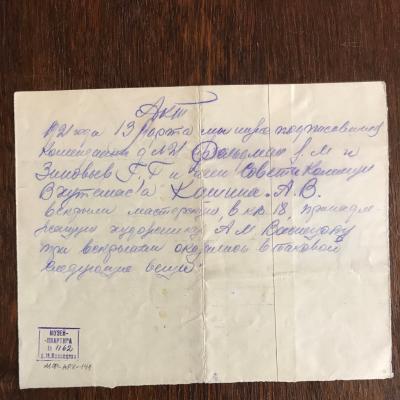 Акт
1921 года 13 марта мы ниже подписавшиеся
Комендант д №21 Фельдман И. М и
Зиновьев Г.Г и член Совета Коммуны
Вхутемаса Комина. А.В.
вскрыли мастерскую, в кв. 18, принадле
жащую художнику А.М. Васнецову
при вскрытии оказались в таковой
следующие вещи:
МУЗЕЙ-
-КВАРТИРА
№ 1162
А.М. Васнецова